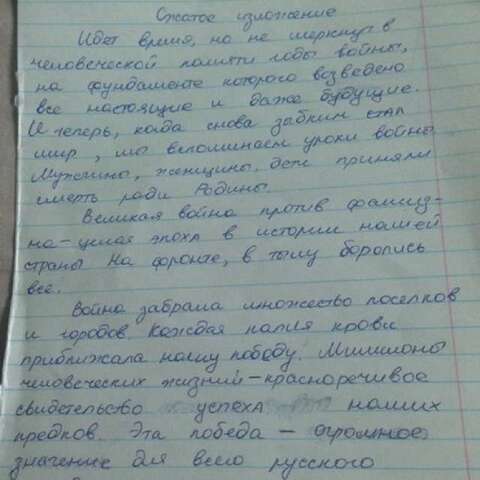 Сжатое изложение
Идет время, но не меркнут в
человеческой памяти годы войны,
на фундаменте которого возведено
все настоящие и даже будущие.
И теперь, когда снова зыбким стал
мир, мы вспоминаем уроки войны
Мужчины, женщины, дети приняли
смерть ради Родины.
Великая война против фашиз-
ма - целая эпоха в истории нашей
страны На фронте, в тылу боролись
все.
Война забрала множество поселков
и городов. Каждая капля крови
приближала нашу победу. Миллионы
человеческих жизний - красноречивое
свидетельство успеха наших
предков. Эта победа - огромное
значение для всего русского